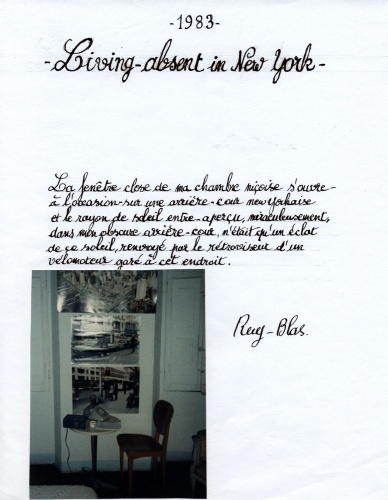 -1983-
-Living-absent in New York-
La fenêtre close de ma chambre niçoise s'ouvre-
à l'occasion-sur une arrière-cour newyorkaise
et le rayon de soleil entre-aperçu, miraculeusement,
dans mon obscure arrière-cour, n'était qu'un éclat
de ce soleil, renvoyé par le rétroviseur d'un
vélomoteur garé à cet endroit.
Ruy-Blas.